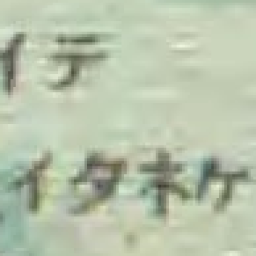 イテ
イタネケ